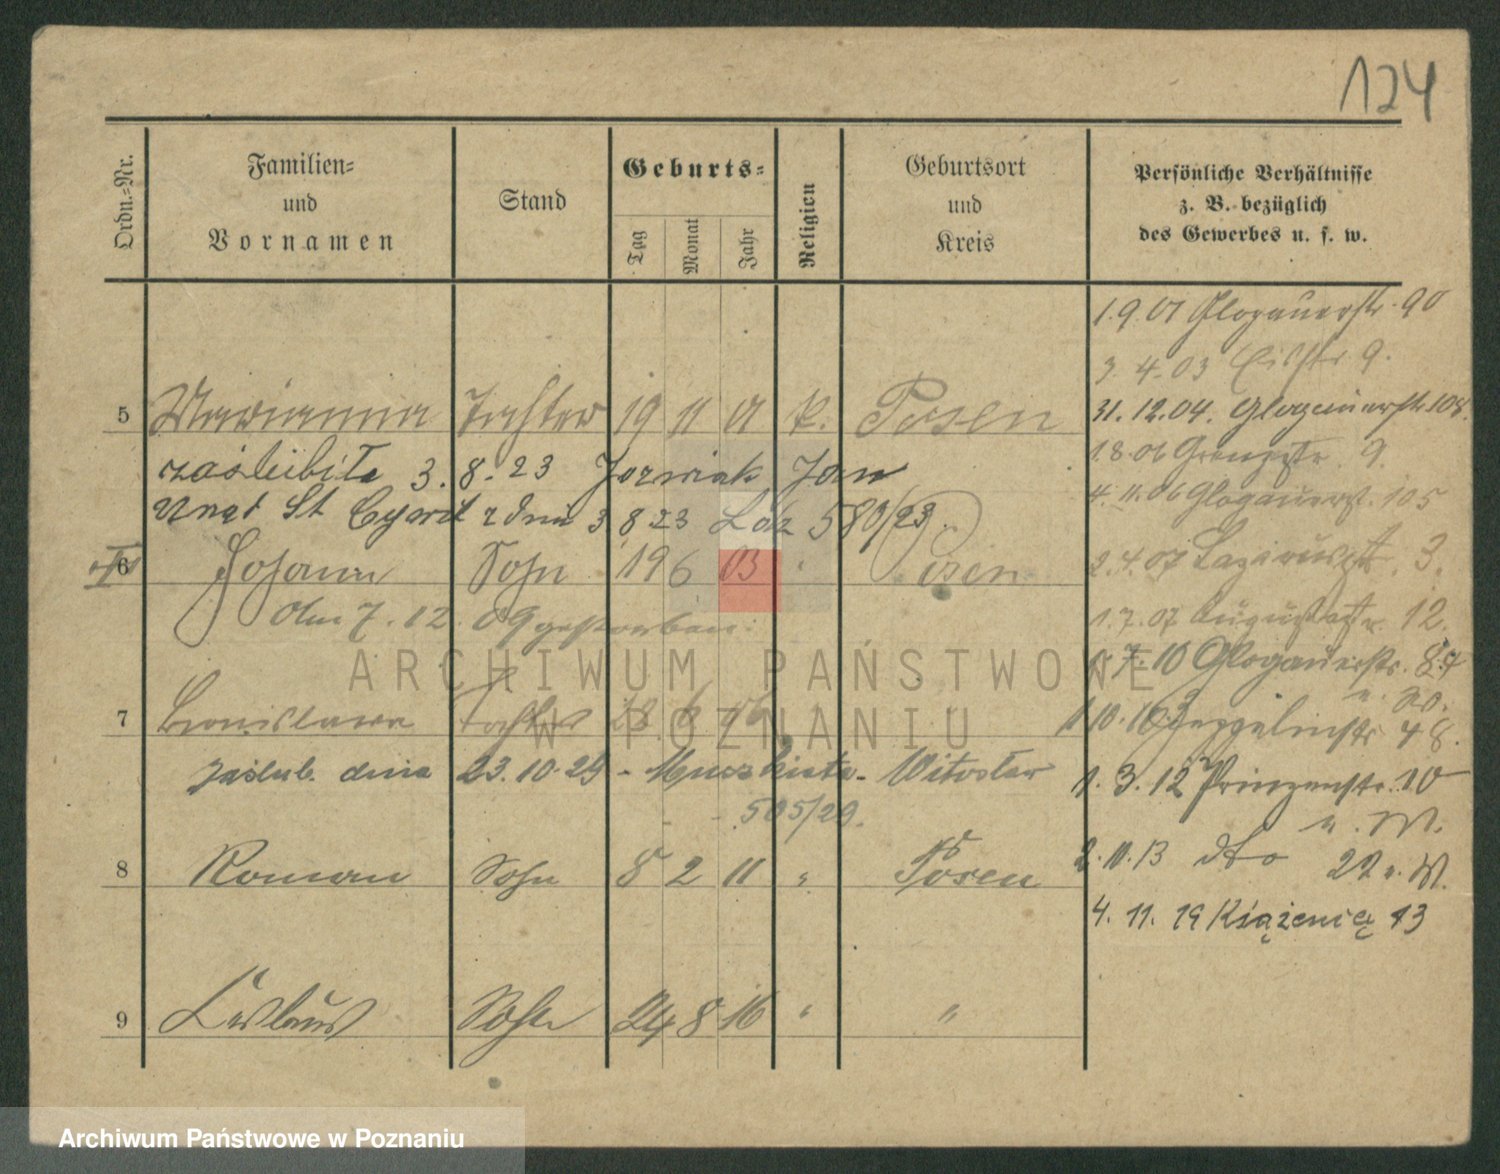 124
Ordn.-Nr.
Familien-
und
Vornamen
Stand
Geburts-
Tag
Monat
Jahr
Religion
Geburtsort
und
Kreis
Persönliche Verhältnisse
z. B. bezüglich
des Gewerbes u. s. w.
1.9.01 Glogauerstr. 90
3.4.03 9.
5 Marianna Tochter 19 11 01 k. Posen
31.12.04. Glogauerstr. 108.
zaślubiła 3. 8. 23 Jozwiak Jan
1.8.06 Grenzstr. 9.
Urząd St Cywil z dnia 3 8 23 580/23.
4.11.06 Glogauerst. 105
6 Johann Sohn 19 6 03 " Posen
2.4.07 3.
am 7.12.09 gestorben.
1.7.07 Augustastr. 12.
7.10 Glogauerstr. 84
7 Bronislawa Tochter 6
1.10.10 Zeppelinstr. 48.
zaślub. dnia 23.10.29 - Witosław
505/29.
1.3.12 Prinzenstr. 10
u. W.
8 Roman Sohn 8 2 11 " Posen
2.10.13 dto W.
4.11.19 Książęcia 13
9 Sohn 24 8 16 " "
ARCHIWUM PAŃSTWOWE
W POZNANIU
Archiwum Państwowe w Poznaniu